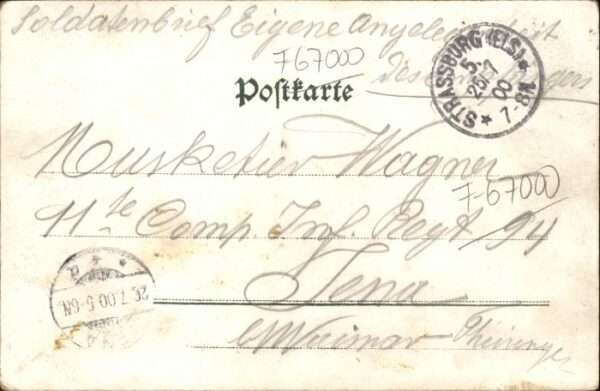 Soldatenbrief Eigene Angelegenheit
des Empfängers
767000
Postkarte
STRASSBURG (ELS)
5.
25.7
00
7-8N
Musketier Wagner
767000
11te Comp. Inf. Regt 94
Jena
26.7.00.5-6N.
Weimar Thüringen